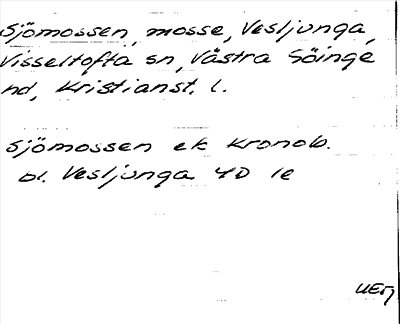 Sjömossen, mosse, Vesljunga,
Visseltofta sn, Västra Göinge
hd, Kristianst. l.
Sjömossen ek Kronob.
bl. Vesljunga 4D 1e